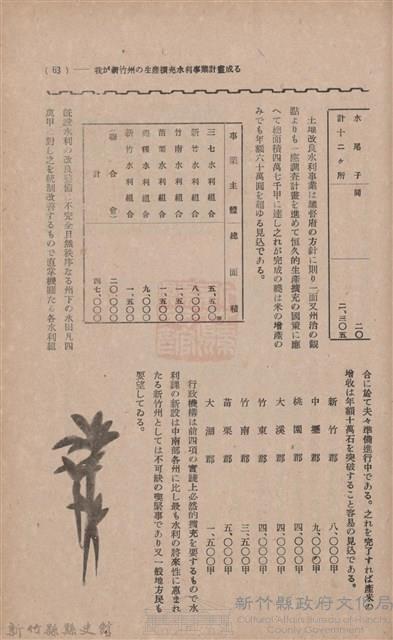 (63) ── 我が新竹州の生產擴充水利事業計畫成る
水尾子閘 二〇
計十二ヶ所 二、三〇五
土地改良水利事業は總督府の方針に則り一面又州治の觀
點よりも一應調査計畫を進めて恒久的生產擴充の國策に應
へて總面積四萬七千甲に達し之れが完成の曉は米の增產の
みでも年額六十萬圓を超ゆる見込である。
事業主體 總面積
三七水利組合 五、五〇〇甲
新竹水利組合 八、〇〇〇
竹南水利組合 一、五〇〇
苗栗水利組合 一、五〇〇
苑裡水利組合 九、〇〇〇
新竹水利組合 一、五〇〇
(聯合會) 二〇、〇〇〇
計 四七、〇〇〇
既設水利の改良整備は不完全且無秩序なる州下の水田凡四
萬甲に對し之を統制改善するもので直掌機關たる各水利組
合に於て夫々準備進行中である。之れを完了すれば產米の
增收は年額十萬石を突破すること容易の見込である。
新竹郡 八、〇〇〇甲
中壢郡 九、〇〇〇甲
桃園郡 四、〇〇〇甲
大溪郡 四、〇〇〇甲
竹東郡 四、〇〇〇甲
竹南郡 三、五〇〇甲
苗栗郡 五、〇〇〇甲
大湖郡 一、五〇〇甲
行政機構は前四項の實踐上必然的擴充を要するもので水
利課の新設は中南部各州に比し最も水利の將來性に惠まれ
たる新竹州としては不可缺の喫緊事であり又一般地方民も
要望してゐる。
新竹縣縣史館
新竹縣政府文化局
Cultural Affairs Bureau of Hsinchu
County Government